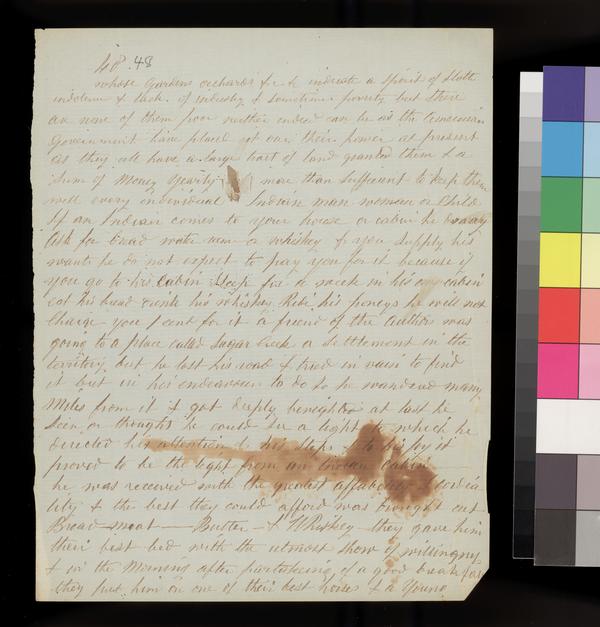 48 . 48
whose Gardens orchards &c &c indicate a spirit of Sloth
indolence & lack of industry & sometimes poverty but there
are none of them poor neither indeed can be as the American
Government have placed it out their power at present
as they all have a large tract of land granted them & a
Sum of Money yearly more than sufficient to keep them
well every individual Indian man woman or Child
If an Indian comes to your house or cabin he
Ask for bread water wine or whiskey & if you supply his
wants he do not expect to pay you for it because if
you go to his Cabin Sleep for a week in his cabin
eat his bread drink his whiskey Ride his poneys he will not
Charge you 1 cent for it a friend of the authors was
going to a place called Sugar Creek a Settlement in the
territory but he lost his road & tried in vain to find
it but in his endeavours to do so he wandered many
Miles from it & got deeply benighted at last he
Seen or thought he could see a light to which he
directed his attention & his steps & to his joy it
proved to be the light from an Indian Cabin
he was received with the greatest affability & cordia
lity & the best they could afford was brought out
Bread meat Butter & Whiskey they gave him
their best bed with the utmost show of willingness
& in the Morning after partakeing of a good breakfast
they put him on one of their best horses & a Young